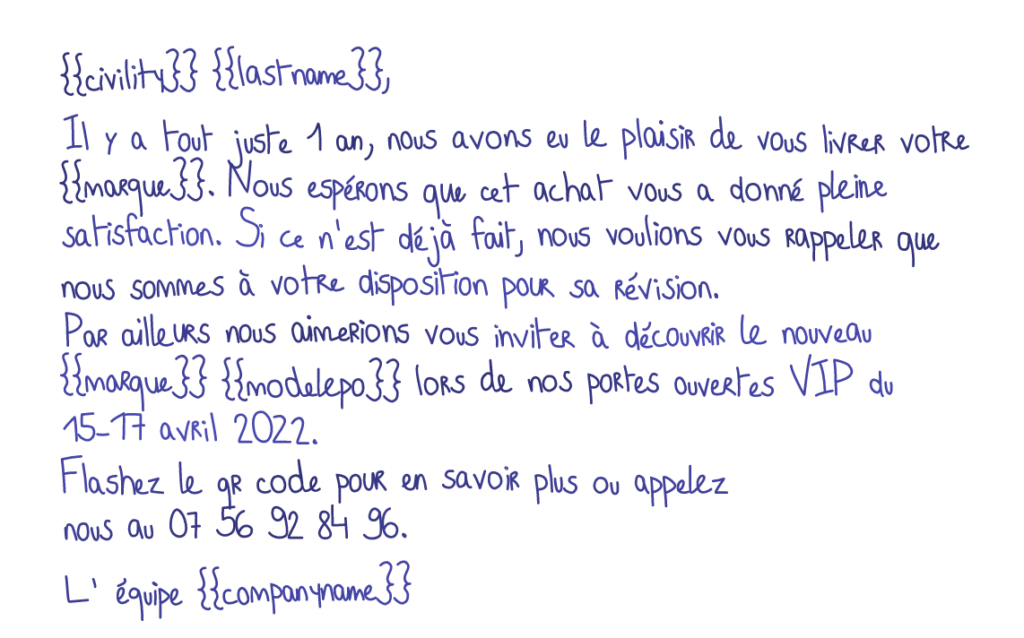 {{civility}} {{lastname}},
Il y a tout juste 1 an, nous avons eu le plaisir de vous livrer votre
{{marque}}. Nous espérons que cet achat vous a donné pleine
satisfaction. Si ce n'est déjà fait, nous voulions vous rappeler que
nous sommes à votre disposition pour sa révision.
Par ailleurs nous aimerions vous inviter à découvrir le nouveau
{{marque}} {{modelepo}} lors de nos portes ouvertes VIP du
15-17 avril 2022.
Flashez le qR code pour en savoir plus ou appelez
nous au 07 56 92 84 96.
L' équipe {{companyname}}